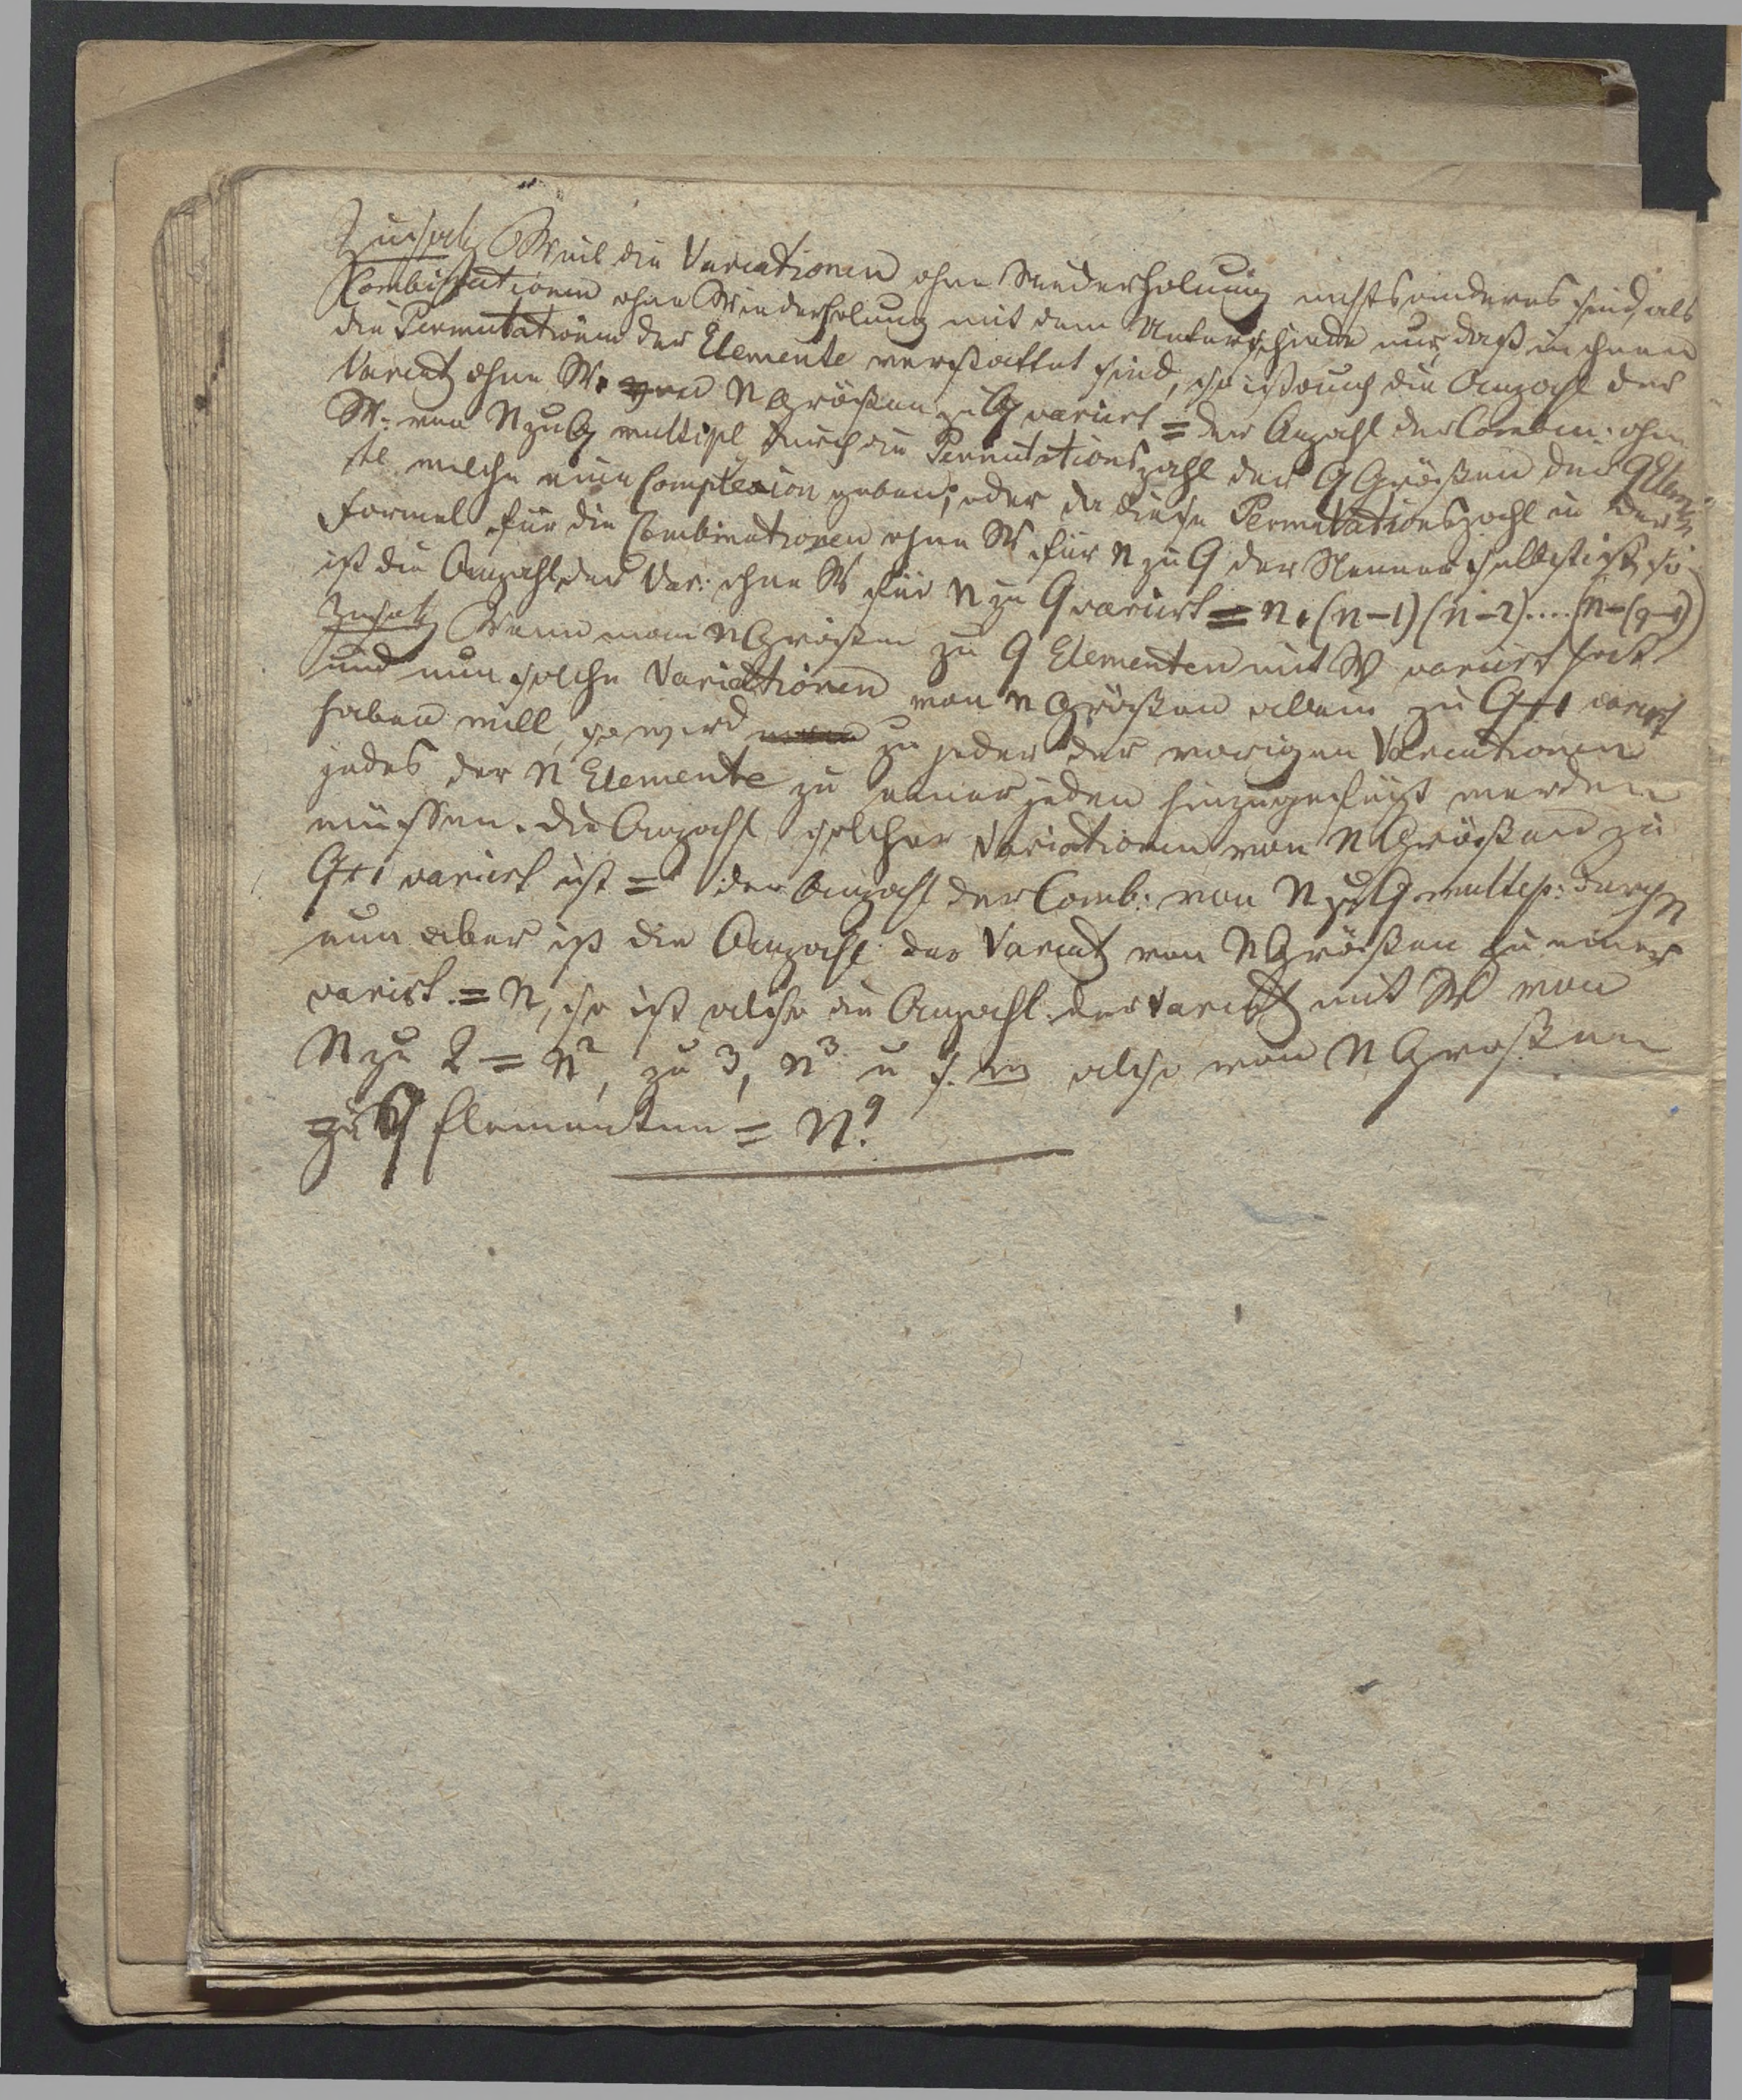 Zusatz Weil die Variationen ohne Wiederholung nichts anderes sind, als
Combinationen ohne Wiederholung mit dem Unterschiede nur, daß in ihnen
die Permutationen der Elemente verstattet sind, so ist auch die Anzahl der
Variat ohne W. von n Größen zu q variirt = der Anzahl der Combin: ohne
W: von n zu q multipl durch die Permutationszahl der q Größen der q Elemen
te welche eine Complexion geben; oder da diese Permutationszahl in der
Formel für die Combinationen ohne W für n zu q der Nenner selbst ist, so
ist die Anzahl der Var: ohne W für n zu q variirt = n.(n-1)(n-2)....(n-(q-1))
Zusatz Wenn man n Größen zu q Elementen mit W variirt hat
und nun solche Variationen von n Größen allein zu q+1 variirt
haben will, so wird zu jeder der vorigen Variationen
jedes der n Elemente zu einer jeden hinzugefügt werden
müssen. die Anzahl solcher Variationen von n Größen zu
q+1 variirt ist = der Anzahl der Comb: von n zu q multip: durch n
nun aber ist die Anzahl der Variat von n Größen zu einer
variirt = n, so ist also die Anzahl der Variat mit W von
n zu 2 = n², zu 3, n³ u s. w also von n Großen
zu q Elementen = n^q.